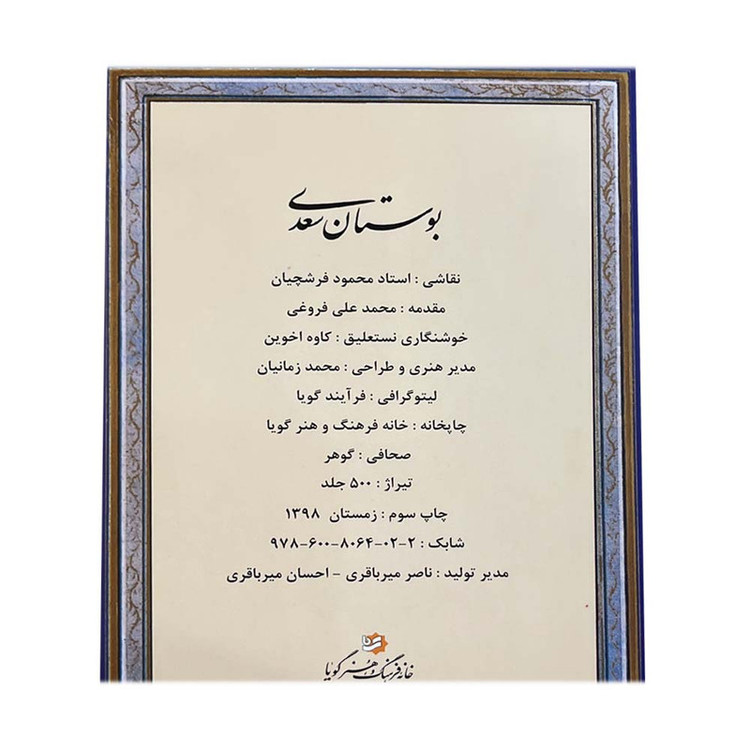 بوستان سعدی
نقاشی : استاد محمود فرشچیان
مقدمه : محمد علی فروغی
خوشنگاری نستعلیق : کاوه اخوین
مدیر هنری و طراحی : محمد زمانیان
لیتوگرافی : فرآیند گویا
چاپخانه : خانه فرهنگ و هنر گویا
صحافی : گوهر
تیراژ : ۵۰۰ جلد
چاپ سوم : زمستان ۱۳۹۸
شابک : ۲-۰۲-۸۰۶۴-۶۰۰-۹۷۸
مدیر تولید : ناصر میرباقری - احسان میرباقری
خانه فرهنگ و هنر گویا